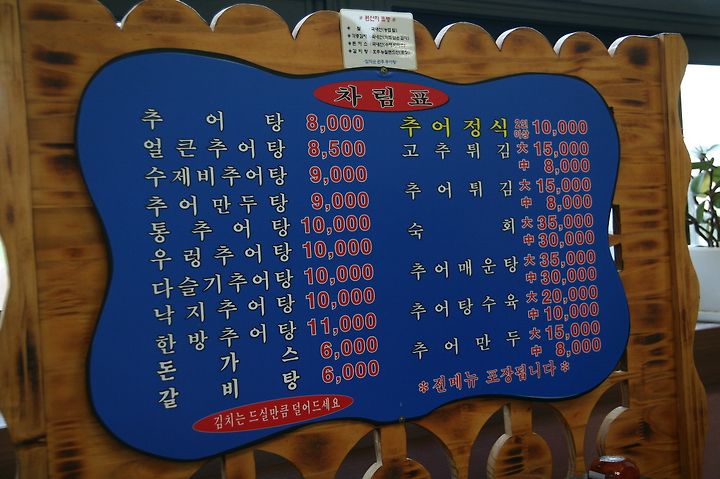 원산지 표방
차림표
추어탕 8,000
얼큰추어탕 8,500
수제비추어탕 9,000
추어만두탕 9,000
통추어탕 10,000
우렁추어탕 10,000
다슬기추어탕 10,000
낙지추어탕 10,000
한방추어탕 11,000
돈가스 6,000
갈비탕 6,000
김치는 드실만큼 덜어드세요
추어정식 2인이상 10,000
고추튀김 大 15,000
中 8,000
추어튀김 大 15,000
中 8,000
숙회 大 35,000
中 30,000
추어매운탕 大 35,000
中 30,000
추어탕수육 大 20,000
中 10,000
추어만두 大 15,000
中 8,000
※전메뉴 포장됩니다※